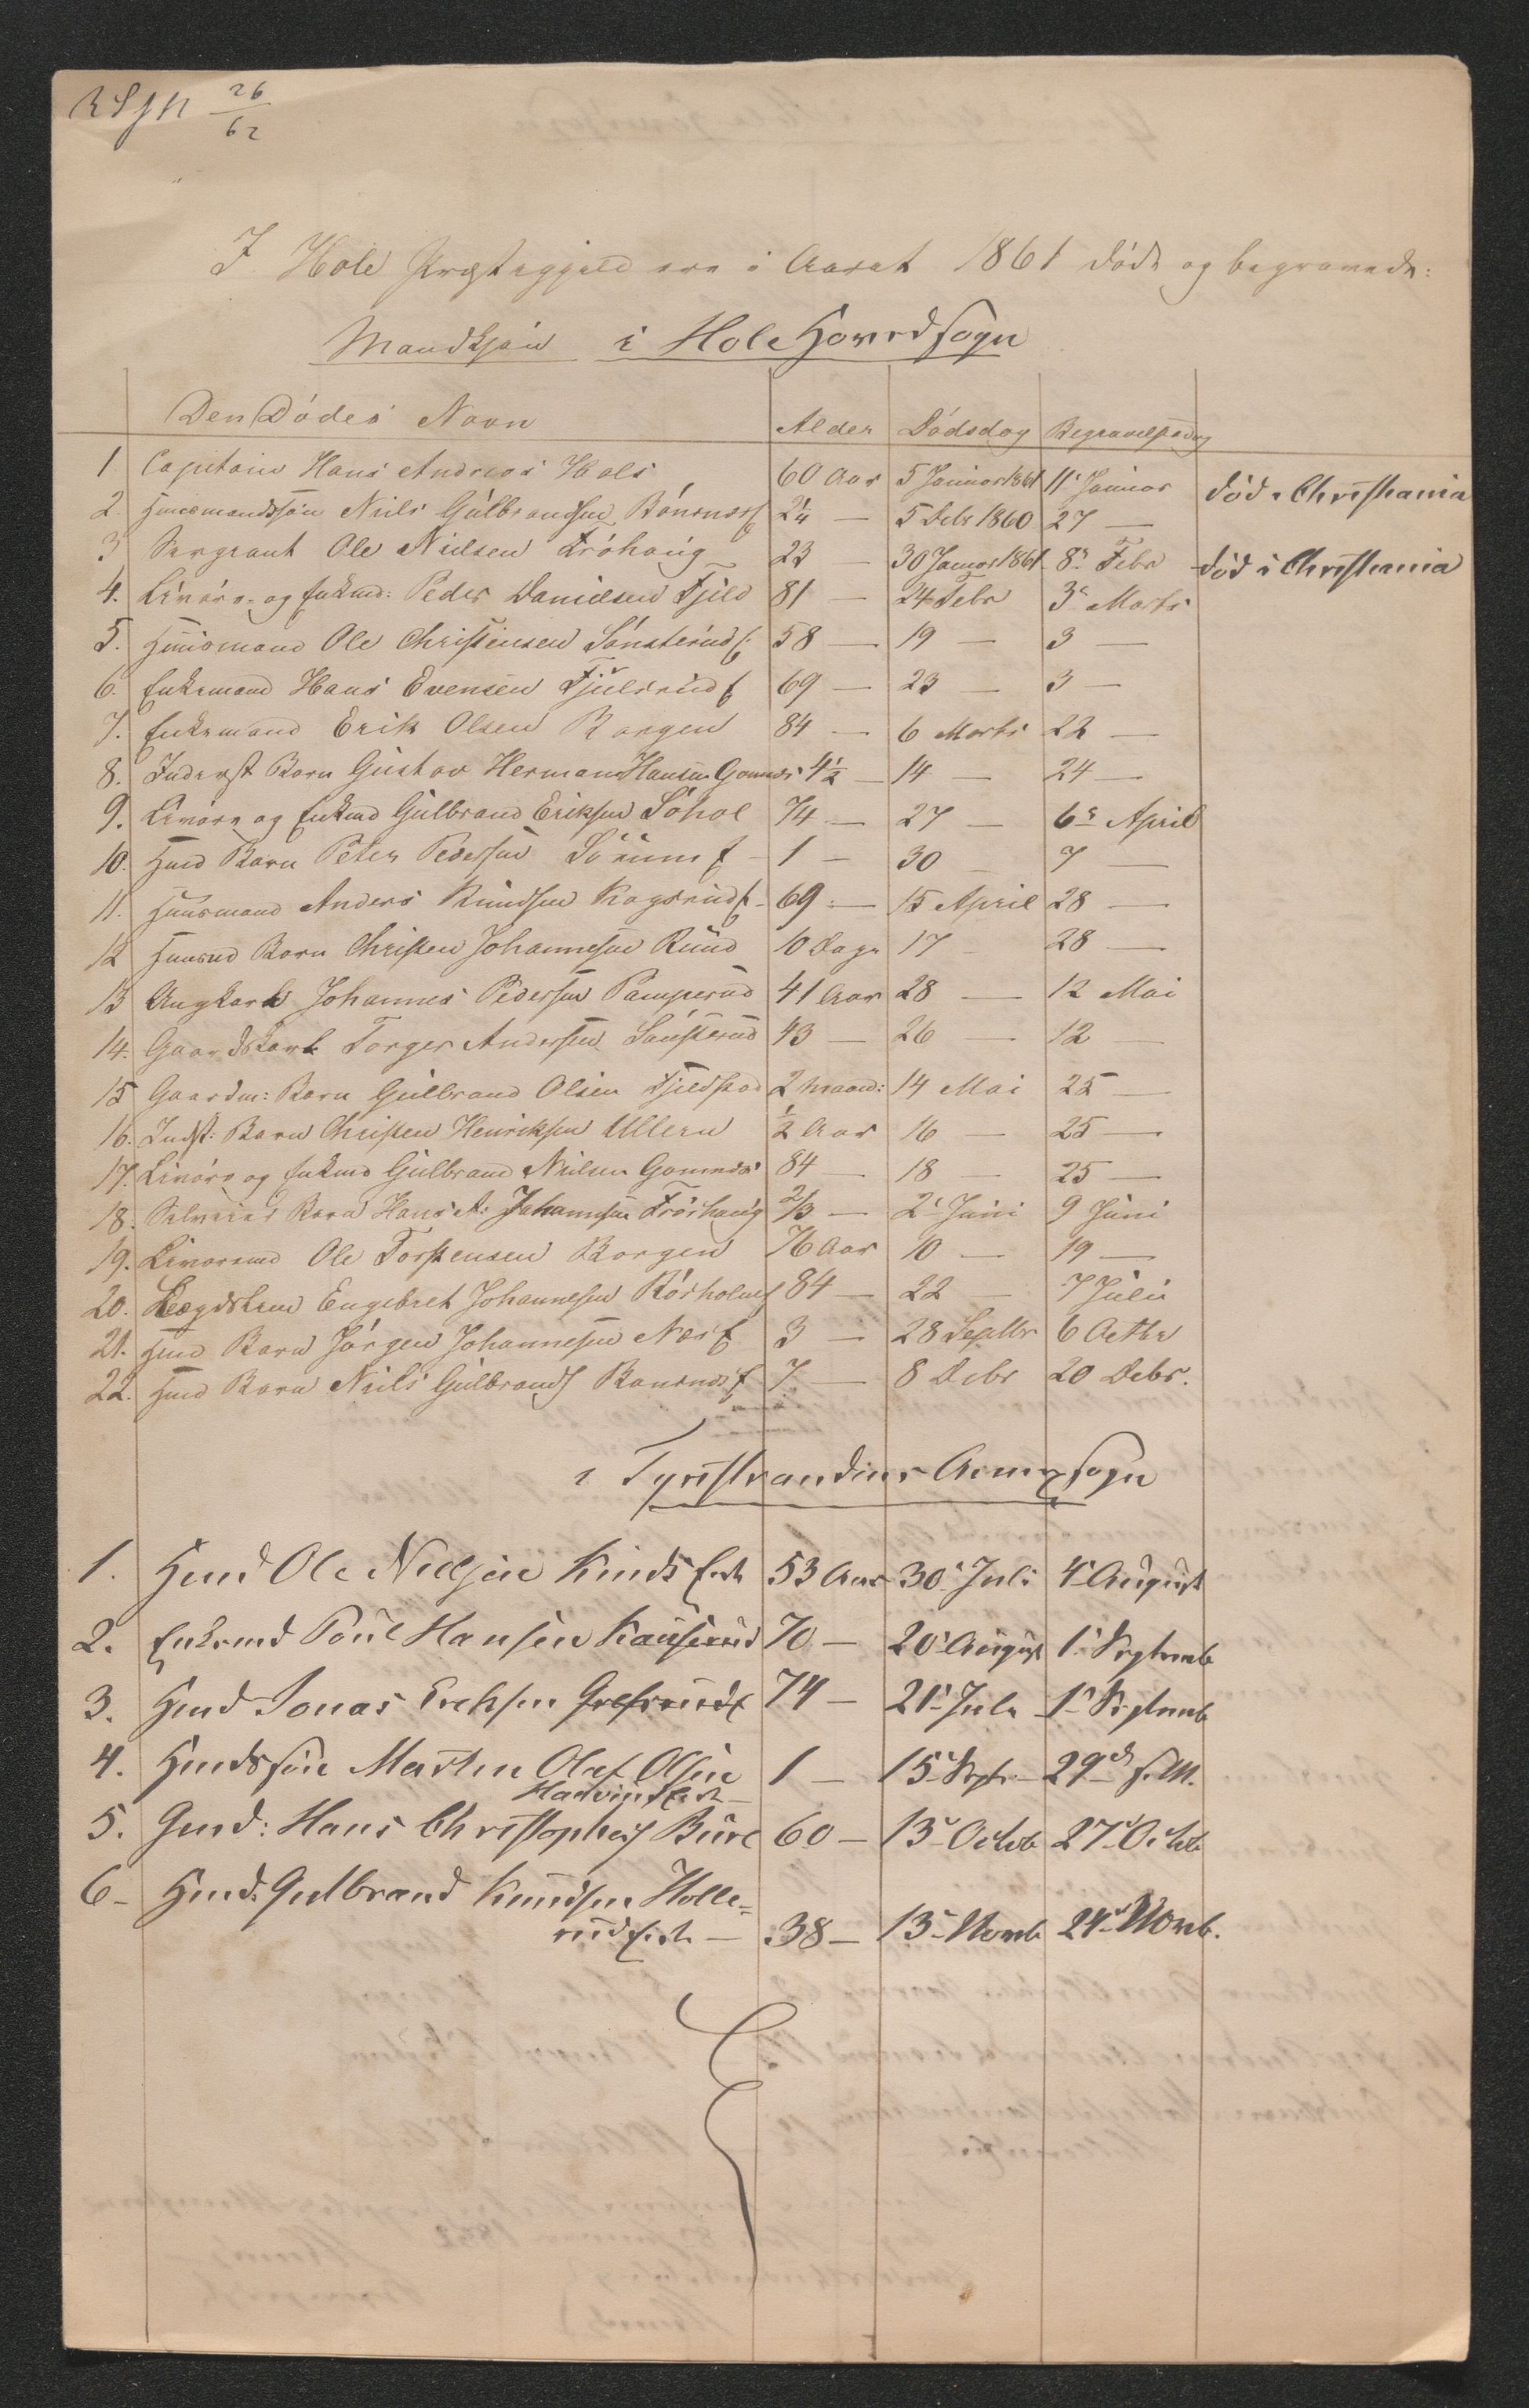 26
62
I Hole Præstegjeld ere i Aaret 1861 døde og begravede:
Mandkjøn i Hole Hovedsogn
Den Dødes Navn Alder Dødsdag Begravelsesdag
1. Capitain Hans Andreas Hals 60 Aar 5 Januar 1861 11 Januar død i Christiania
2. Huusmandssøn Niels Gulbrandsen Bönsnæs 2¼ — 5 Debr 1860 27 —
3 Sergeant Ole Nielsen Fröhaug 23 — 30 Januar 1861 8de Febr død i Christiania
4. Livöre- og Enkmd: Peder Danielsen Fjeld 81 — 24 Febr 3de Marts
5. Huusmand Ole Christensen Sönsterud 58 — 19 — 3 —
6. Enkemand Hans Evensen Fjulsrud 69 — 23 — 3 —
7. Enkemand Erik Olsen Borgen 84 — 6 Marts 22 —
8. Inderst Barn Gustav Herman Hansen Gomnæs 4½ — 14 — 24 —
9. Livöre og Enkmd Gulbrand Eriksen Söhol 74 — 27 — 6te April
10. Hmd Barn Peter Pedersen 1 — 30 7 —
11. Huusmand Anders Knudsen Kogsrud 69 — 15 April 28 —
12 Huusmd Barn Christen Johannesen Ruud 10 Dage 17 - 28 —
13 Ungkarl Johannes Pedersen Pamperud 41 Aar 28 — 12 Mai
14. Gaardskarl Torger Andersen Sönsterud 43 — 26 — 12 —
15 Gaardm: Barn Gulbrand Olsen Fjeldstad 2 Maand: 14 Mai 25 —
16. Indst: Barn Christen Henriksen Ullern ½ Aar 16 — 25 —
17. Livöre og Enkmd Gulbrand Nielsen Gomnæs 84 — 18 — 25 —
18. Barn Hans A: Johannesen Fröshaug 2/3 — 2 Juni 9 Juni
19. Livöremd Ole Torstensen Borgen 76 Aar 10 — 19 —
20. Lægdslem Engebret Johannesen Rörholm 84 — 22 — 7 Juli
21. Hmd Barn Jörgen Johannesen Næs 3 — 28 Septbr 6 Octbr
22. Hmd Barn Niels Gulbrands Bönsnæs 7 — 8 Debr 20 Debr.
i Tyristrandens Annexsogn
1. Hmd Ole Nielsen Kinds Eie 53 Aar 30 Juli 4 August
2. Enkemd Poul Hansen 70 — 20 August 1 Septemb
3. Hmd Jonas Ericksen 74 — 21 Juli 1 Septemb
4. Hmdssøn Martin Olaf Olsen 1 — 15 Septr 29de s. M.
5. Gmd: Hans Christophers Bure 60 — 13 Octob 27 Octob
6 — Hmd: Gulbrand Knudsen Holle-
rud Eie — 38 — 13 Novb 24 Novb.